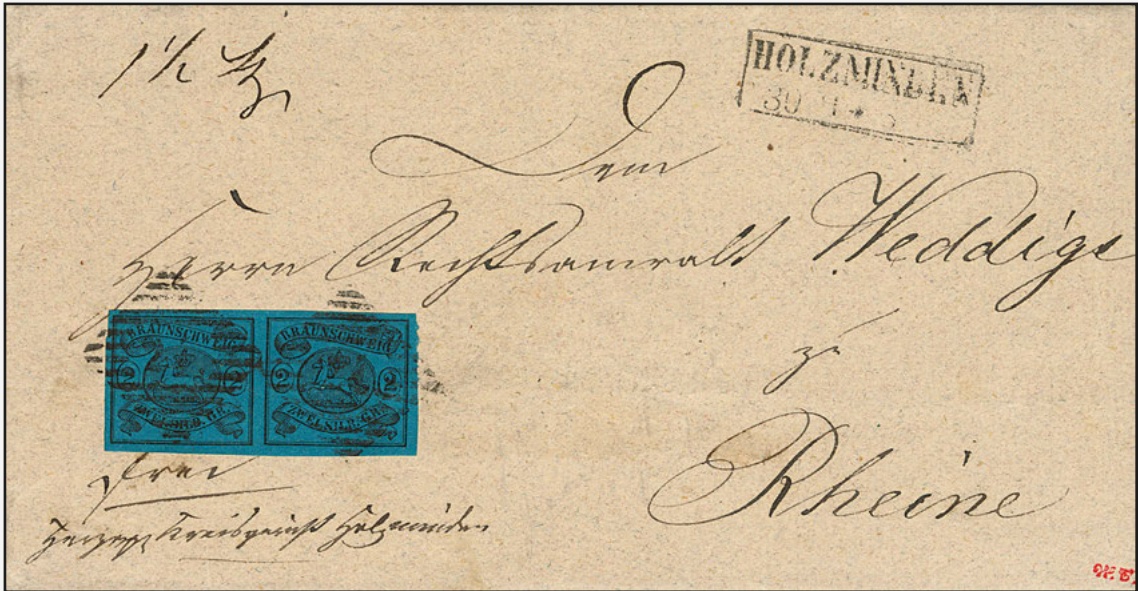 1 1/2
HOLZMINDEN
30
Dem
Herrn Rechtsanwalt Weddige
zu
Rheine
BRAUNSCHWEIG
2 2
ZWEI SILB. GR.
BRAUNSCHWEIG
2 2
ZWEI SILB. GR.
frei
Kreisgericht Holzminden